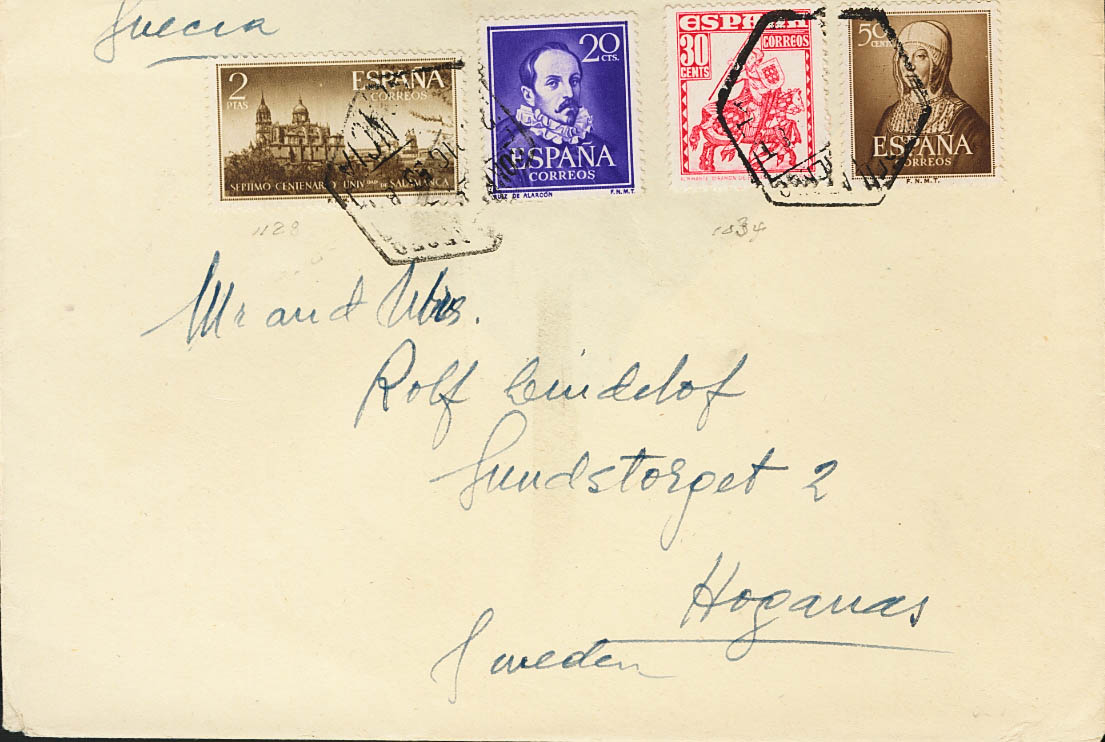 Suecia
2
PTAS
ESPAÑA
CORREOS
SEPTIMO CENTENARIO UNIVDAD DE SALAMANCA
20
CTS.
ESPAÑA
CORREOS
RUIZ DE ALARCÓN F.N.M.T.
ESPAÑA
30
CENTS
CORREOS
50
CENTS
ESPAÑA
CORREOS
F.N.M.T.
1128
1034
Mr and Mrs.
Rolf Lindelof
Sundstorget 2
Hoganas
Sweden